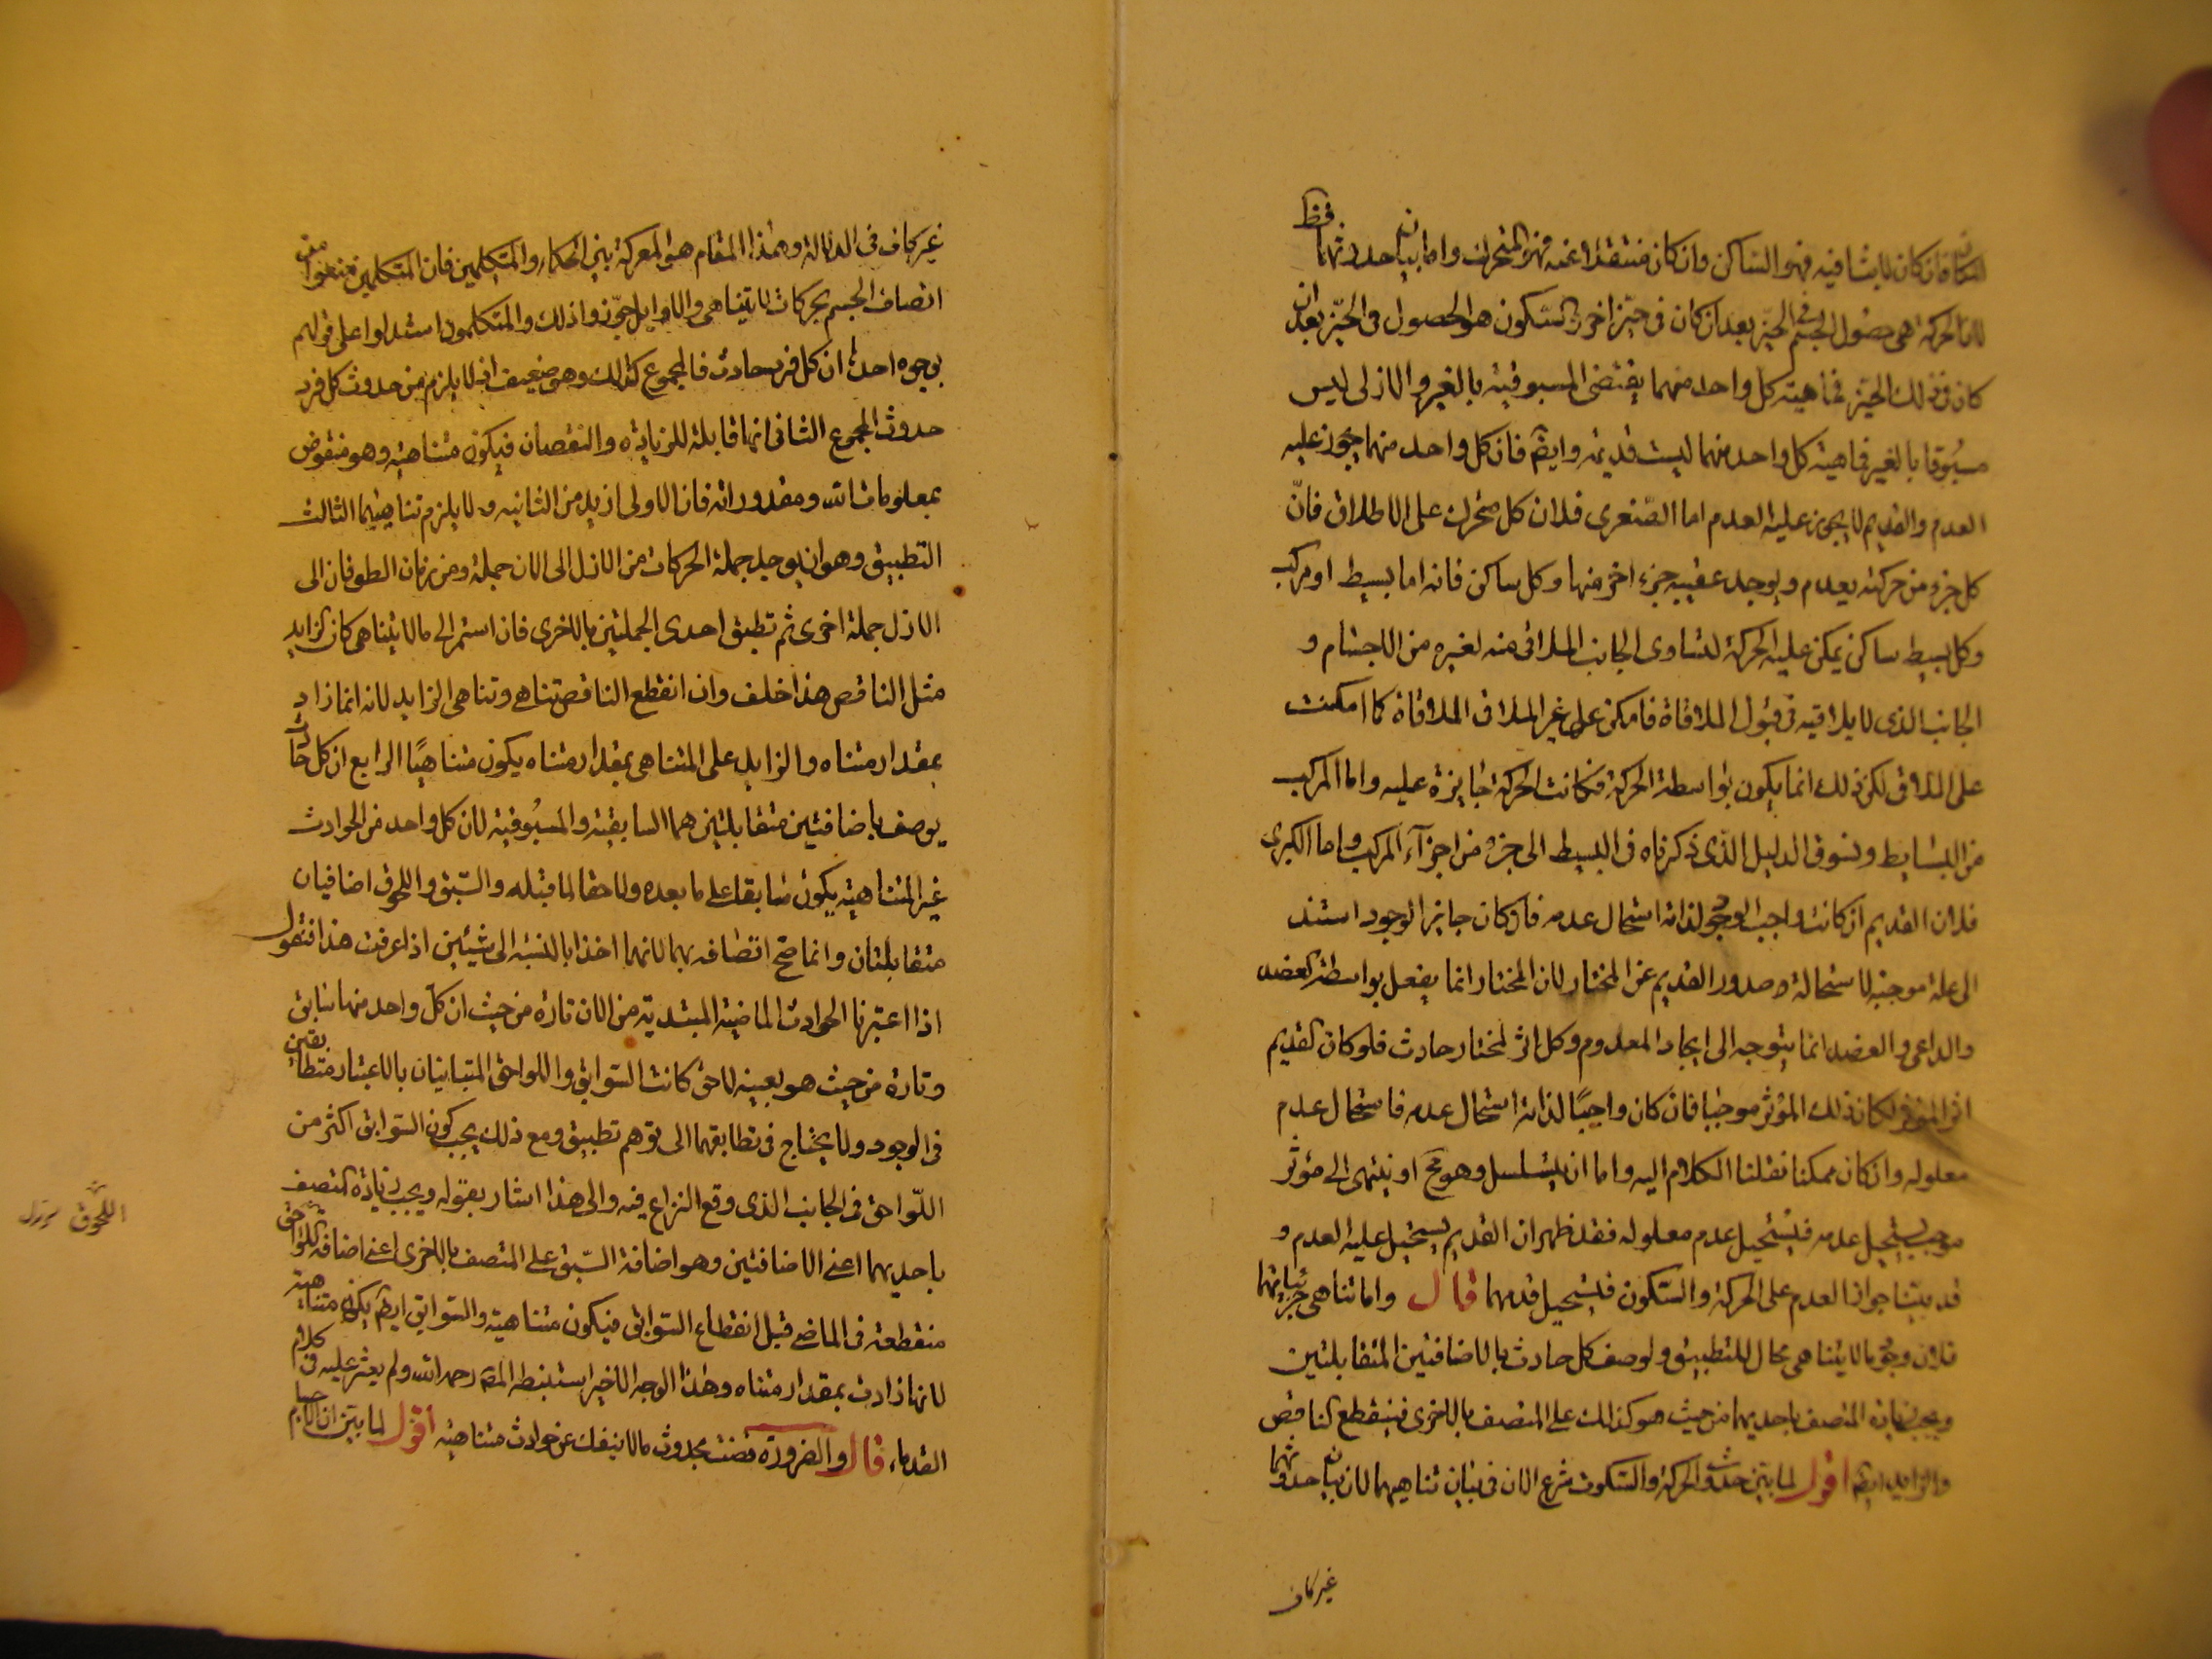 المكان فان كان لابثا فيه فهو الساكن وان كان منتقلا عنه فهو المتحرك واما بيان حدوثهما فظ
لان الحركة هى حصول الجسم فى الحيز بعد ان كان فى حيز اخر والسكون هو الحصول فى الحيز بعد ان
كان فى ذلك الحيز فماهيته كل واحد منهما يقتضى المسبوقية بالغير والازلى ليس
مسبوقا بالغير فماهية كل واحد منهما ليست قديمه وايضا فان كل واحد منهما يجوز عليه
العدم والقديم لا يجوز عليه العدم اما الصغرى فلان كل متحرك على الاطلاق فان
كل جزء من حركته يعدم ويوجد عقيبه جزء اخر منها وكل ساكن فانه اما بسيط او مركب
وكل بسيط ساكن يمكن عليه الحركة لتساوى الجانب الملاقى منه لغيره من الاجسام و
الجانب الذى لا يلاقيه فى قبول الملاقاة فامكن على غير الملاقى الملاقاة كما امكنت
على الملاقى لكن ذلك انما يكون بواسطة الحركة فكانت الحركة جايزة عليه واما المركب
من البسايط ونسوق الدليل الذى ذكرناه فى البسيط الى جزء من اجزآء المركب واما الكبرى
فلان القديم ان كانت واجب الوجود لذاته استحال عدمه فان كان جايز الوجود استند
الى علة موجبة لاستحالة صدور القديم عن المختار لان المختار انما يفعل بواسطة القصد
والداعى والقصد انما يتوجه الى ايجاد المعدوم وكل اثر لمختار حادث فلو كان القديم
اثرا لمؤثر لكان ذلك المؤثر موجبا فان كان واجبًا لذاته استحال عدمه فاستحال عدم
معلوله وان كان ممكنا نقلنا الكلام اليه واما ان يتسلسل وهو مح او ينتهى الى مؤثر
موجب يستحيل عدمه فيستحيل عدم معلوله فقد ظهر ان القديم يستحيل عليه العدم و
قد بينا جواز العدم على الحركة والسكون فيستحيل قدمهما قال واما تناهى جزئياتهما
فلان وجود ما لا يتناهى محال للتطبيق ولوصف كل حادث بالاضافتين المتقابلتين
ويجب زيادة المتصف باحديهما من حيث هو كذلك على المتصف بالاخرى فينقطع الناقص
والزايد ايضا اقول لما بين حدوث الحركة والسكون شرع الان فى بيان تناهيهما لان بيان حدوثهما
غير كاف
غير كاف فى الدلالة وهذا المقام هو المعركة بين الحكماء والمتكلمين فان المتكلمين منعوا من
اتصاف الجسم بحركات لا يتناهى والاوايل جوزوا ذلك والمتكلمون استدلوا على قولهم
بوجوه احدها ان كل فرد حادث فالمجموع كذلك وهو ضعيف اذ لا يلزم من حدوث كل فرد
حدوث المجموع الثانى انها قابلة للزيادة والنقصان فيكون متناهية وهو منقوض
بمعلومات الله ومقدوراته فان الاولى ازيد من الثانيه ولا يلزم تناهيهما الثالث
التطبيق وهو ان يوجد جملة الحركات من الازل الى الان جملة ومن زمان الطوفان الى
الازل جملة اخرى ثم تطبق احدى الجملتين بالاخرى فان استمر الى ما لا يتناهى كان الزايد
مثل الناقص هذا خلف وان انقطع الناقص تناهى وتناهى الزايد لانه انما زاد
بمقدار متناه والزايد على المتناهى بمقدار متناه يكون متناهيًا الرابع ان كل حادث
يوصف باضافتين متقابلتين هما السابقية والمسبوقية لان كل واحد من الحوادث
غير المتناهية يكون سابقا على ما بعده ولاحقا لما قبله والسبق واللحوق اضافيان
متقابلتان وانما صح اتصافه بهما لانهما اخذا بالنسبه الى شيئين اذا عرفت هذا فنقول
اذا اعتبرنا الحوادث الماضية المبتدية من الان تارة من حيث ان كل واحد منها سابق
وتارة من حيث هو بعينه لاحق كانت السوابق واللواحق المتباينان بالاعتبار متطابقين
فى الوجود ولا يحتاج فى تطابقهما الى توهم تطبيق ومع ذلك يجب كون السوابق اكثر من
اللواحق فى الجانب الذى وقع النزاع فيه والى هذا اشار بقوله ويجب زيادة المتصف
باحديهما اعنى الاضافتين وهو اضافة السبق على المتصف بالاخرى اعنى اضافة اللواحق
اللحوق
منقطعة فى الماضى قبل انقطاع السوابق فيكون متناهية والسوابق ايضا يكون متناهية
لانها زادت بمقدار متناه وهذا الوجه الاخير استنبطه المص رحمه الله ولم يعثر عليه فى كلام
القدماء قال والضرورة قضت بحدوث ما لا ينفك عن حوادث متناهية اقول لما بين ان الاجسام